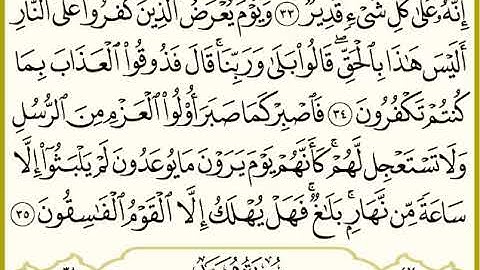 إِنَّهُۥ عَلَىٰ كُلِّ شَىْءٍ قَدِيرٌ ٣٣ وَيَوْمَ يُعْرَضُ ٱلَّذِينَ كَفَرُوا۟ عَلَى ٱلنَّارِ
أَلَيْسَ هَـٰذَا بِٱلْحَقِّ ۖ قَالُوا۟ بَلَىٰ وَرَبِّنَا ۚ قَالَ فَذُوقُوا۟ ٱلْعَذَابَ بِمَا
كُنتُمْ تَكْفُرُونَ ٣٤ فَٱصْبِرْ كَمَا صَبَرَ أُو۟لُوا۟ ٱلْعَزْمِ مِنَ ٱلرُّسُلِ
وَلَا تَسْتَعْجِل لَّهُمْ ۚ كَأَنَّهُمْ يَوْمَ يَرَوْنَ مَا يُوعَدُونَ لَمْ يَلْبَثُوٓا۟ إِلَّا
سَاعَةً مِّن نَّهَارٍۭ ۚ بَلَـٰغٌ ۚ فَهَلْ يُهْلَكُ إِلَّا ٱلْقَوْمُ ٱلْفَـٰسِقُونَ ٣٥